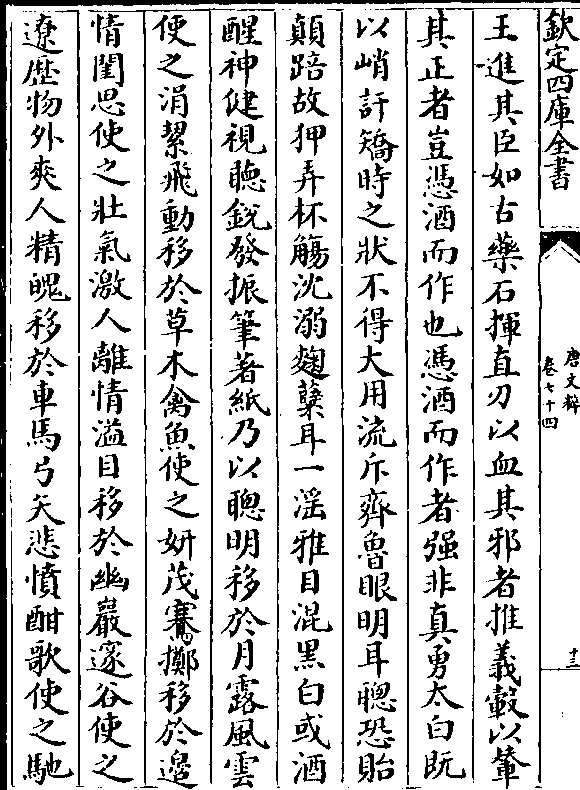 欽定四庫全書
唐文粹
卷七十四
十三
王進其臣如古藥石揮直刃以血其邪者推義轂以輦
其正者豈憑酒而作也憑酒而作者强非真勇太白既
以峭訐矯時之狀不得大用流斥齊魯眼明耳聰恐貽
顛踣故狎弄杯觴沈溺麴糵耳一淫雅目混黑白或酒
醒神健視聽銳發振筆著紙乃以聰明移於月露風雲
使之涓絜飛動移於草木禽魚使之妍茂騫擲移於邊
情閨思使之壯氣激人離情溢目移於幽巖邃谷使之
遼歷物外爽人精魄移於車馬弓矢悲憤酣歌使之馳